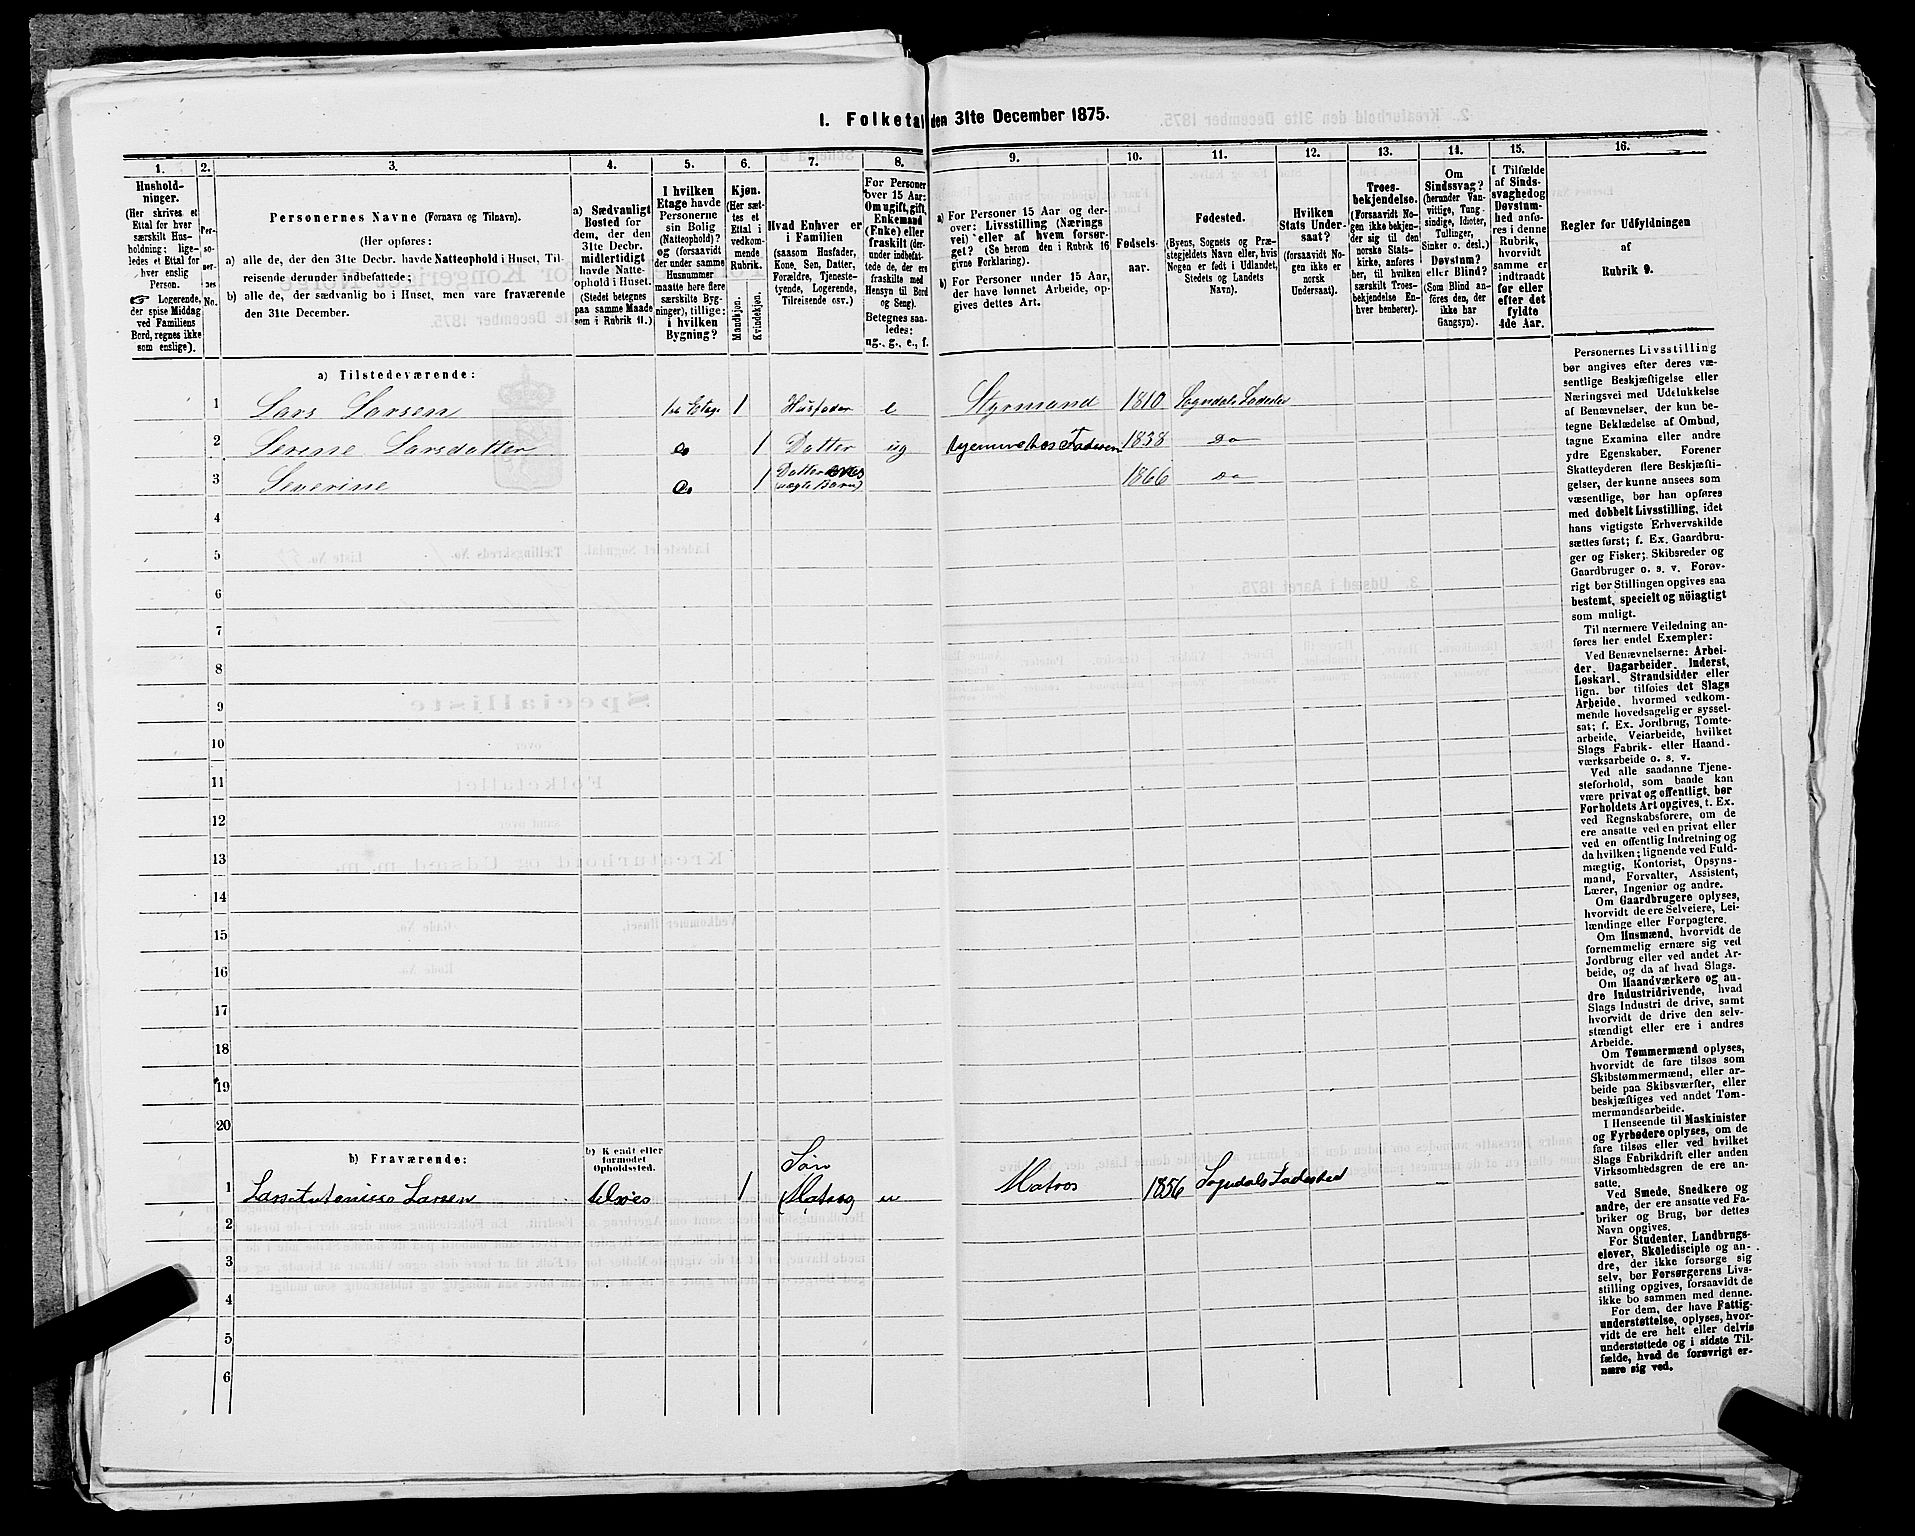 1. Folketal den 31te December 1875.
1. 2. 3. 4. 5. 6. 7. 8. 9. 10. 11. 12. 13. 14. 15. 16.
Hushold-
ninger.
(Her skrives et
Ettal for hver
særskilt Hus-
holdning; lige-
ledes et Ettal for
hver enslig
Person.
☞ Logerende,
der spise Middag
ved Familiens
Bord, regnes ikke
som enslige).
Per-
so-
ner-
nes
No.
Personernes Navne (Fornavn og Tilnavn).
(Her opføres:
a) alle de, der den 31te Decbr. havde Natteophold i Huset, Til-
reisende derunder indbefattede;
b) alle de, der sædvanlig bo i Huset, men vare fraværende
den 31te December.
a) Sædvanligt
Bosted for
dem, der den
31te Decbr.
midlertidigt
havde Natte-
ophold i Huset.
(Stedet betegnes
paa samme Maade
som i Rubrik 11.)
I hvilken
Etage havde
Personerne
sin Bolig
(Natteophold)?
og (forsaavidt
der under samme
Husnummer
maatte høre flere
særskilte Byg-
ninger), tillige:
i hvilken
Bygning?
Kjøn.
(Her sæt-
tes et
Ettal i
vedkom-
mende
Rubrik.
Mandkjøn.
Kvindekjøn.
Hvad Enhver er
i Familien
(saasom Husfader,
Kone, Søn, Datter,
Forældre, Tjeneste-
tyende, Logerende,
Tilreisende osv.)
For Personer
over 15 Aar:
Om ugift, gift,
Enkemand
(Enke) eller
fraskilt (der-
under indbefat-
tede de, der ere
fraskilte med
Hensyn til Bord
og Seng).
Betegnes saa-
ledes:
ug., g., e., f.
a) For Personer 15 Aar og der-
over: Livsstilling (Nærings
vei) eller af hvem forsør-
get? (Se herom den i Rubrik 16
givne Forklaring).
b) For Personer under 15 Aar,
der have lønnet Arbeide, op-
gives dettes Art.
Fødsels-
aar.
Fødested.
(Byens, Sognets og Præ-
stegjeldets Navn eller, hvis
Nogen er født i Udlandet,
Stedets og Landets
Navn).
Hvilken
Stats Under-
saat?
(forsaavidt No-
gen ikke er
norsk
Undersaat).
Troes-
bekjendelse.
(Forsaavidt No-
gen ikke bekjen-
der sig til den
norske Stats-
kirke, anføres
her, til hvilken
særskilt Troes-
bekjendelse En-
hver henhører).
Om
Sindssvag?
(herunder Van-
vittige, Tung-
sindige, Idioter,
Tullinger,
Sinker o. desl.)
Døvstum?
eller Blind?
(Som Blind an-
føres den, der
ikke har
Gangsyn).
I Tilfælde
af Sinds-
svaghed og
Døvstum-
hed anfø-
res i denne
Rubrik,
hvorvidt
samme er
indtraadt
før eller
efter det
fyldte
4de Aar.
Regler for Udfyldningen
af
Rubrik 9.
a) Tilstedeværende:
1 Lars Larsen 1ste Etage 1 Husfader e Styrmand 1810 Sogndals Ladested
2 Serine Larsdatter do 1 Datter ug hjemme hos Faderen 1858 do
3 Severine do 1 Datter (uægte Barn) 1866 do
4
5
6
7
8
9
10
11
12
13
14
15
16
17
18
19
20
b) Fraværende:
b) Kjendt eller
formodet
Opholdssted.
1 Larsen 1 Søn Matros Matros 1856 Sogndals Ladested
2
3
4
5
6
Personernes Livsstilling
bør angives efter deres væ-
sentlige Beskjæftigelse eller
Næringsvei med Udelukkelse
af Benævnelser, der kun be-
tegne Beklædelse af Ombud,
tagne Examina eller andre
ydre Egenskaber. Forener
Skatteyderen flere Beskjæfti-
gelser, der kunne ansees som
væsentlige, bør han opføres
med dobbelt Livsstilling, idet
hans vigtigste Erhvervskilde
sættes først; f. Ex. Gaardbru-
ger og Fisker; Skibsreder og
Gaardbruger o. s. v. Forøv-
rigt bør Stillingen opgives saa
bestemt, specielt og nöiagtigt
som muligt.
Til nærmere Veiledning an-
føres her endel Exempler:
Ved Benævnelserne: Arbei-
der, Dagarbeider, Inderst,
Løskarl, Strandsidder eller
lign. bør tilføies det Slags
Arbeide, hvormed vedkom-
mende hovedsagelig er syssel-
sat; f. Ex. Jordbrug, Tomte-
arbeide, Veiarbeide, hvilket
Slags Fabrik- eller Haand-
værksarbeide o. s. v.
Ved alle saadanne Tjene-
steforhold, som baade kan
være privat og offentligt, bør
Forholdets Art opgives, t. Ex.
ved Regnskabsførere, om de
ere ansatte ved en privat eller
ved en offentlig Indretning og
da hvilken; lignende ved Fuld-
mægtig, Kontorist, Opsyns-
mand, Forvalter, Assistent,
Lærer, Ingeniør og andre.
Om Gaardbrugere oplyses,
hvorvidt de ere Selveiere, Lei-
lændinge eller Forpagtere.
Om Husmænd, hvorvidt de
fornemmelig ernære sig ved
Jordbrug eller ved andet Ar-
beide, og da af hvad Slags.
Om Haandværkere og an-
dre Industridrivende, hvad
Slags Industri de drive, samt
hvorvidt de drive den selv-
stændigt eller ere i andres
Arbeide.
Om Tømmermænd oplyses,
hvorvidt de fare tilsøs som
Skibstømmermænd, eller ar-
beide paa Skibsværfter, eller
beskjæftiges ved andet Tøm-
mermandsarbeide.
I Henseende til Maskinister
og Fyrbødere oplyses, om de
fare tilsøs eller ved hvilket
Slags Fabrikdrift eller anden
Virksomhedsgren de ere an-
satte.
Ved Smede, Snedkere og
andre, der ere ansatte ved Fa-
briker og Brug, bør dettes
Navn opgives.
For Studenter, Landbrugs-
elever, Skoledisciple og an-
dre, der ikke forsørge sig
selv, bør Forsørgerens Livs-
stilling opgives, forsaavidt de
ikke bo sammen med denne.
For dem, der have Fattig-
understøttelse, oplyses, hvor-
vidt de ere helt eller delvis
understøttede og i sidste Til-
fælde, hvad de forøvrigt er-
nære sig ved.